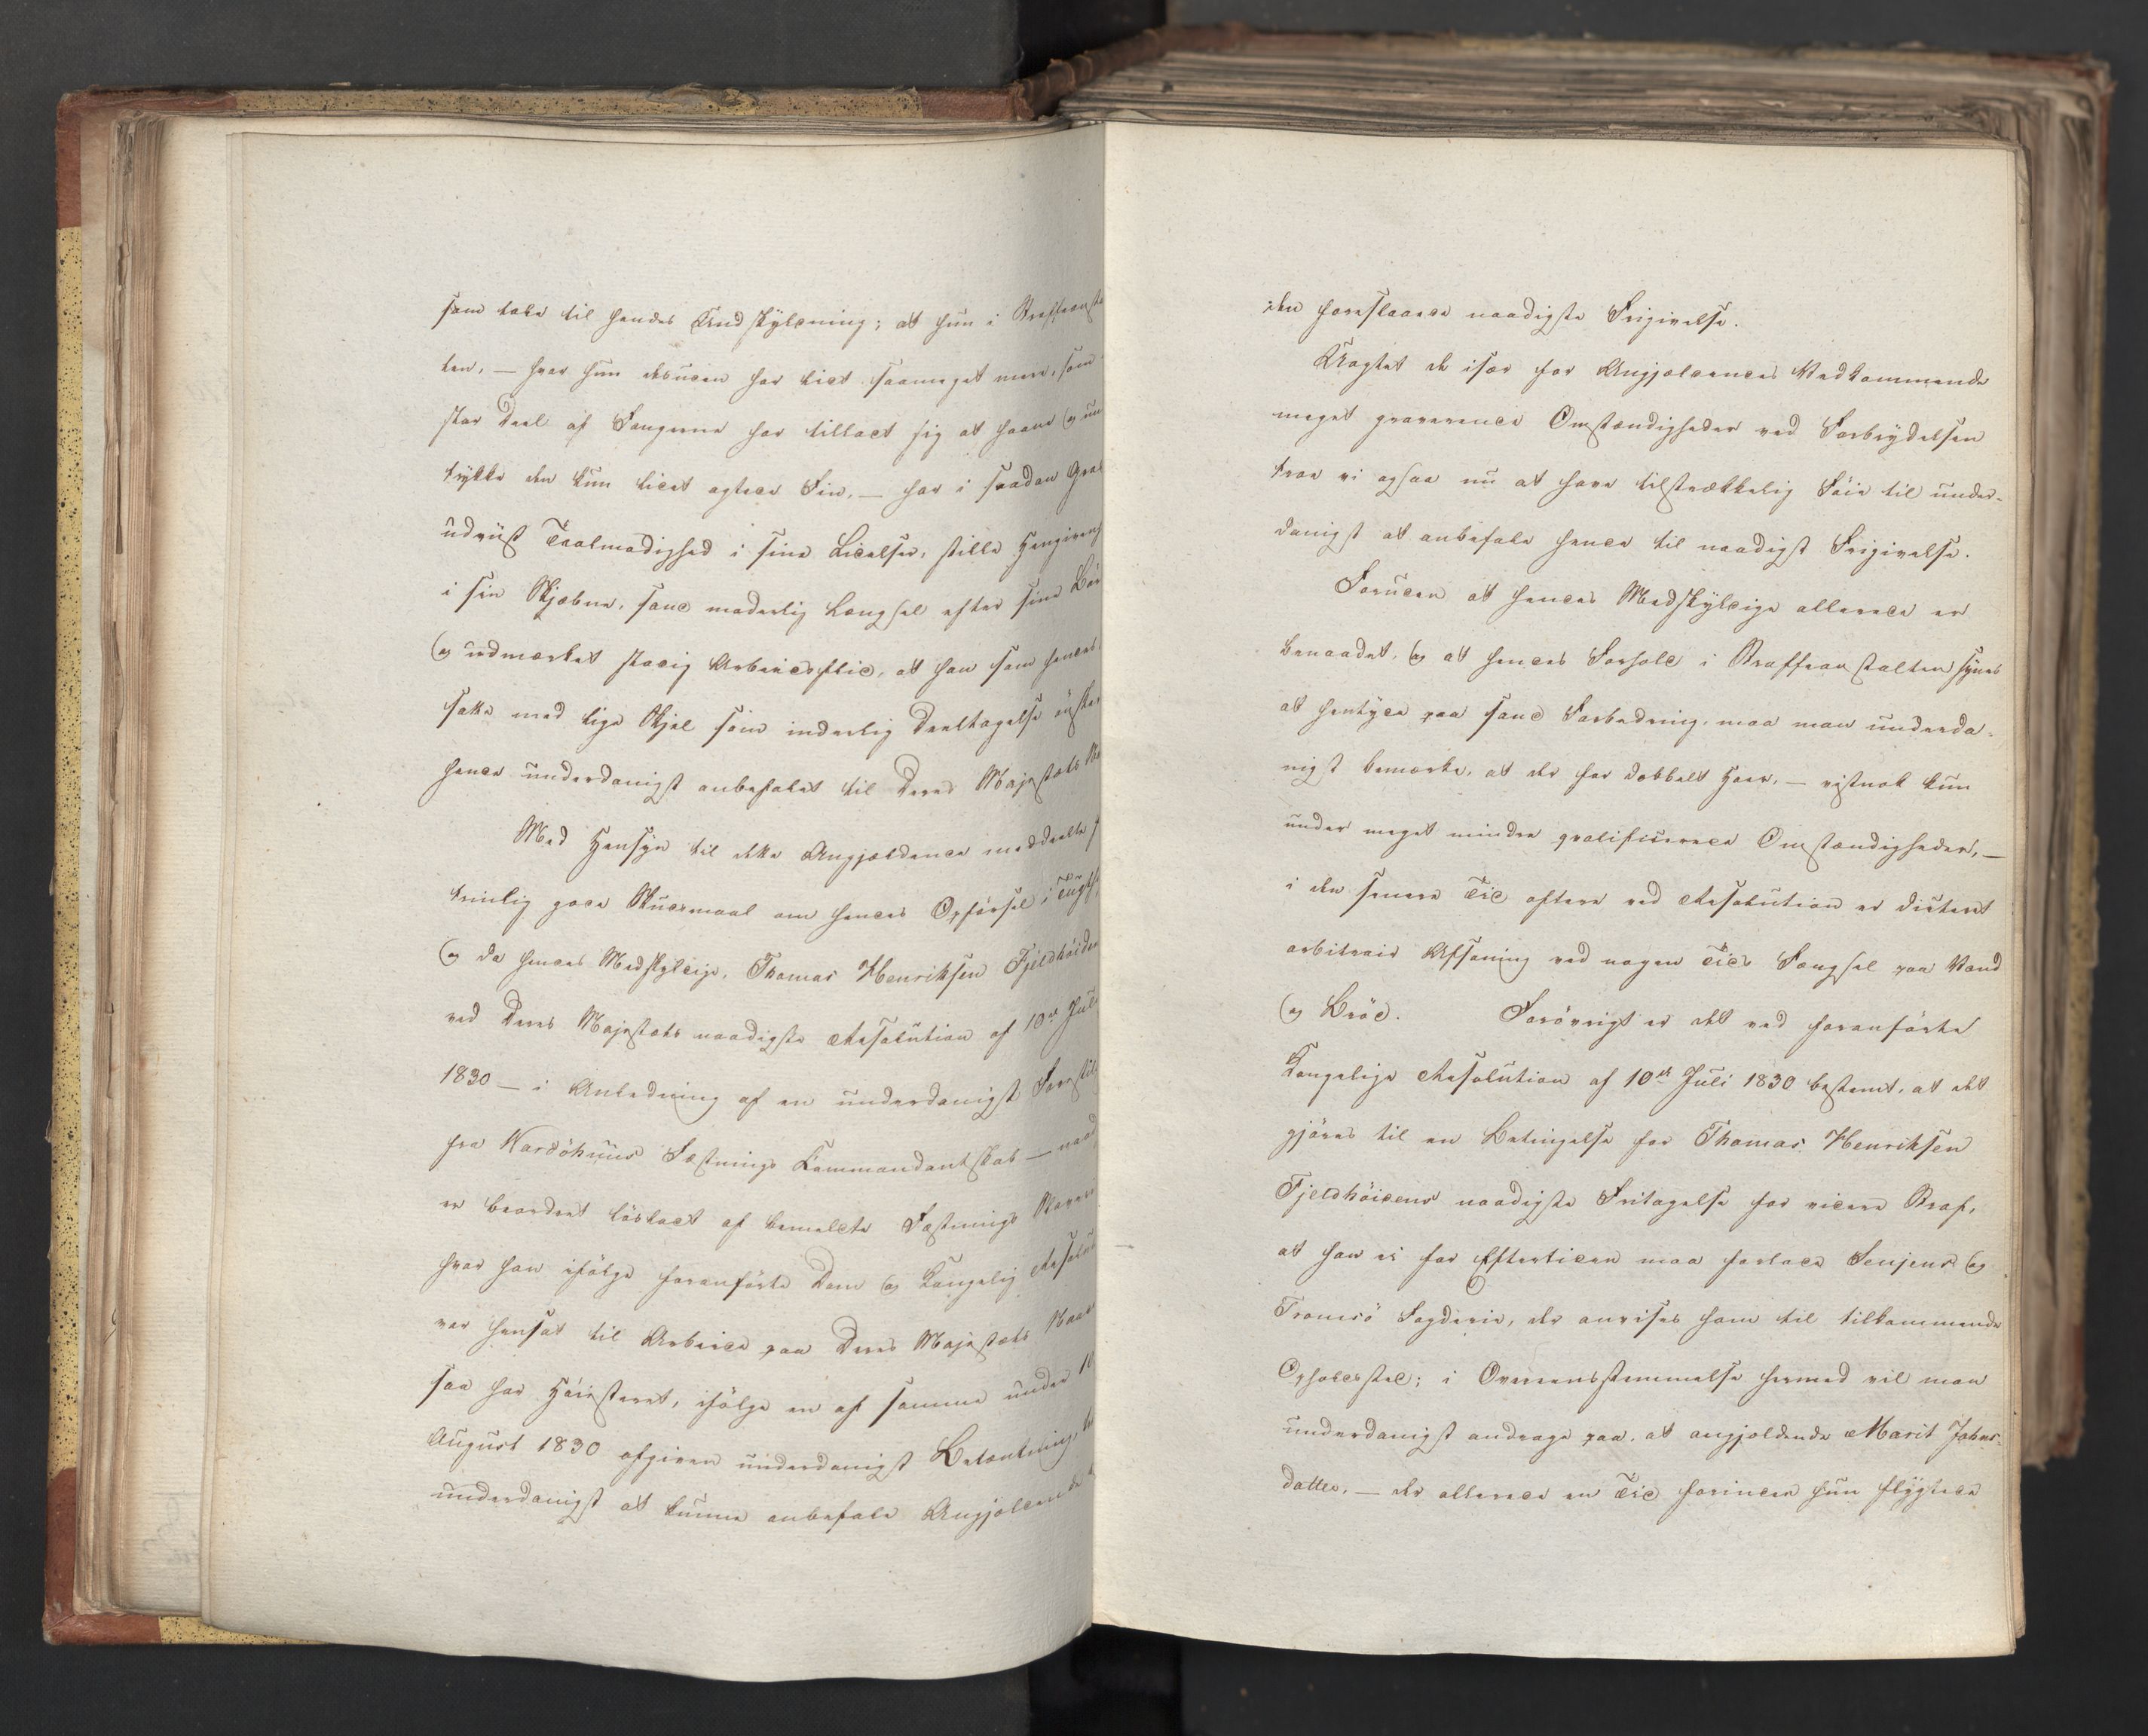 som tale til hendes Undskyldning; at hun i Straffeansta
ten, — hvor hun desuden har lidt saameget mere, som
stor Deel af Fangerne har tilladt sig at haane og un
trykke den kun lidet agtede Fin, — har i saadan Grad
udviist Taalmodighed i sine Lidelser, stille Hengivenh
i sin Skjæbne, sand moderlig Længsel efter sine Bör
og udmærket stadig Arbeidsflid, at han som hendes
saka med lige Skjel som inderlig Deeltagelse önsker
hende underdanigst anbefalet til Deres Majestæts
Med Hensyn til dette Angjældende meddeelte
trinlig gode Skudsmaal om hendes Opförsel i Tugth
og da hendes Medskyldige, Thomas Henriksen Fjeldhöiden
ved Deres Majestæts naadigste Resolution af 10de Juli
1830 — i Anledning af en underdanigst Forestill
fra Wardöhuus Fæstnings Kommandantskab — naad
er beordret lösladt af bemeldte Fæstnings Slaveri
hvor han ifölge foranförte Dom og Kongelig Resolut
var hensat til Arbeide paa Deres Majestæts Naade
saa har Höiesteret, ifölge en af samme under 10
August 1830 afgiven underdanigst Betænkning,
underdanigst at kunne anbefale Angjeldende
den foreslaaede naadigste Frigivelse.
Uagtet de især for Angjældendes Vedkommende
meget graverende Omstændigheder ved Forbrydelsen
troe vi ogsaa nu at have tilstrækkelig Föie til under-
danigst at anbefale hende til naadigst Frigivelse.
Foruden at hendes Medskyldige allerede er
benaadet, og at hendes Forhold i Straffeanstalten synes
at hentyde paa sand Forbedring, maa man underda-
nigst bemærke, at der for dobbelt Hoer, — vistnok kun
under meget mindre qvalificerede Omstændigheder, —
i den senere Tid oftere ved Resolution er dicteret
arbitrair Afsoning ved nogen Tids Fængsel paa Vand
og Bröd. Forövrigt er det ved foranförte
Kongelige Resolution af 10de Juli 1830 bestemt, at det
gjöres til en Betingelse for Thomas Henriksen
Fjeldhöidens naadigste Fritagelse for videre Straf,
at han ei for Eftertiden maa forlade Senjens og
Tromsö Fogderie, der anvises ham til tilkommende
Opholdssted; i Overeensstemmelse hermed vil man
underdanigst andrage paa, at angjeldende Marit Johns-
datter, — der allerede en Tid forinden hun flygtede